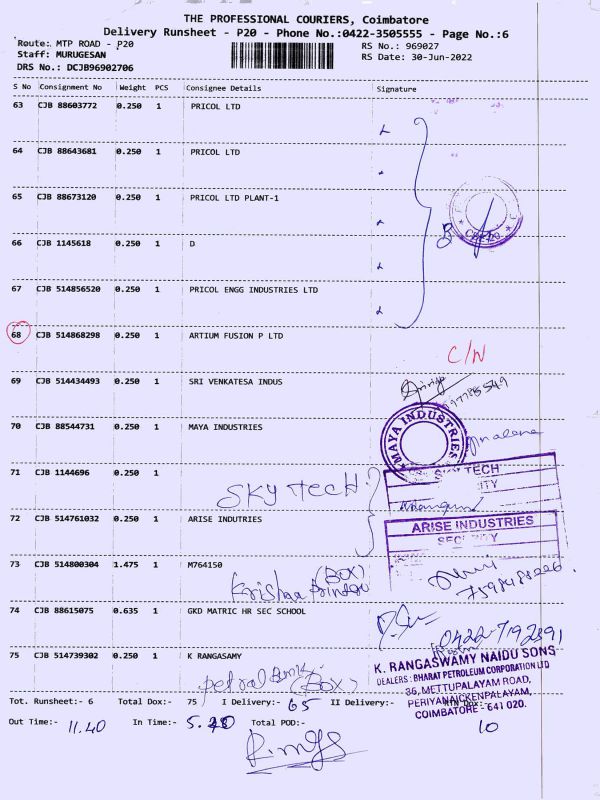 THE PROFESSIONAL COURIERS, Coimbatore
Delivery Runsheet - P20 - Phone No.:0422-3505555 - Page No.:6
Route: MTP ROAD - P20
RS No.: 969027
Staff: MURUGESAN
RS Date: 30-Jun-2022
DRS No.: DCJB96902706
S No Consignment No Weight PCS Consignee Details Signature
63 CJB 88603772 0.250 1 PRICOL LTD
64 CJB 88643681 0.250 1 PRICOL LTD
65 CJB 88673120 0.250 1 PRICOL LTD PLANT-1
66 CJB 1145618 0.250 1 D
67 CJB 514856520 0.250 1 PRICOL ENGG INDUSTRIES LTD
68 CJB 514868298 0.250 1 ARTIUM FUSION P LTD
C/N
69 CJB 514434493 0.250 1 SRI VENKATESA INDUS
70 CJB 88544731 0.250 1 MAYA INDUSTRIES
MAYA INDUSTRIES
71 CJB 1144696 0.250 1
SKY TECH
SKY TECH
72 CJB 514761032 0.250 1 ARISE INDUTRIES
ARISE INDUSTRIES
SECURITY
73 CJB 514800304 1.475 1 M764150
(BOX)
Krishna
74 CJB 88615075 0.635 1 GKD MATRIC HR SEC SCHOOL
75 CJB 514739302 0.250 1 K RANGASAMY
(Box)
K. RANGASWAMY NAIDU SONS
DEALERS: BHARAT PETROLEUM CORPORATION LTD
36, METTUPALAYAM ROAD,
PERIYANAICKENPALAYAM,
COIMBATORE - 641 020.
Tot. Runsheet:- 6 Total Dox:- 75 I Delivery:- 65 II Delivery:-
Out Time:- 11.40 In Time:- Total POD:- 10